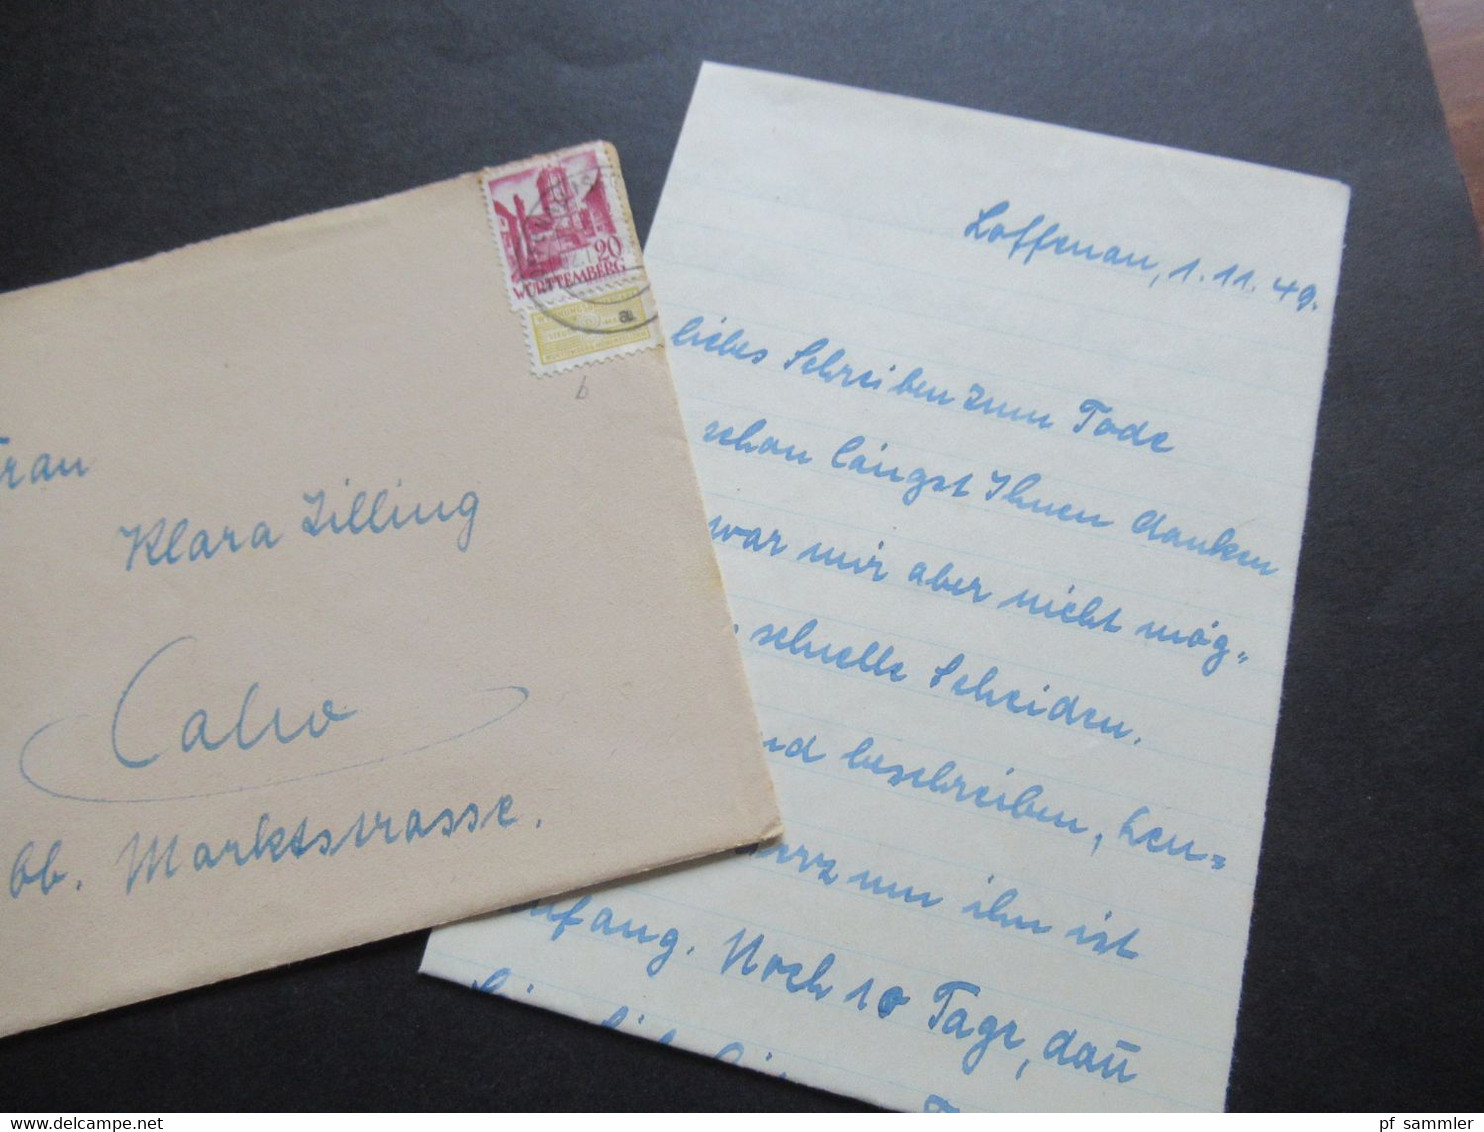 20
WÜRTTEMBERG
a
b
Frau
Klara Zilling
Calw
bb. Marktstrasse.
Loffenau, 1.11.49.
liebes Schreiben zum Tode
schon längst Ihnen danken
war mir aber nicht mög=
schnelle Scheiden.
und beschreiben, heu=
um ihn ist
Anfang. Noch 10 Tage, dañ
pf sammler